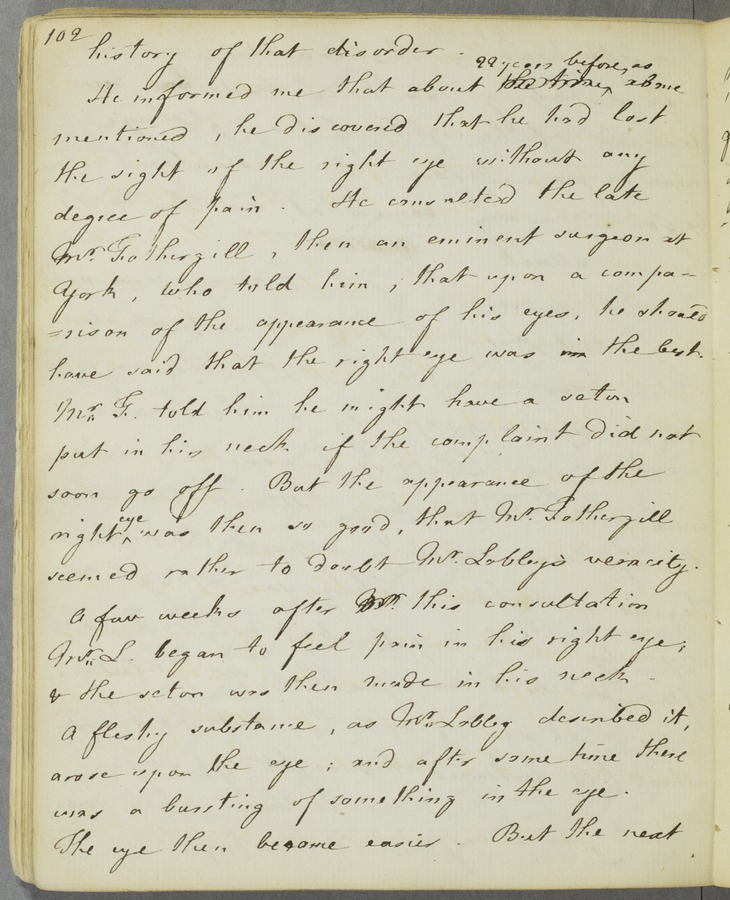 102
history of that disorder.
22 years before, as
He informed me that about the time, above
mentioned, he discovered that he had lost
the sight of the right eye without any
degree of pain. He consulted the late
Mr. Fothergill, then an eminent surgeon at
York, who told him, that upon a compa-
=rison of the appearance of his eyes, he should
have said that the right eye was the best.
Mr. F. told him he might have a seton
put in his neck if the complaint did not
soon go off. But the appearance of the
right eye was then so good, that Mr. Fothergill
seemed rather to doubt Mr. Lobley's veracity.
A few weeks after this consultation
Mr. L. began to feel pain in his right eye;
& the seton was then made in his neck.
A fleshy substance, as Mr. Lobley described it,
arose upon the eye; and after some time there
was a bursting of something in the eye.
The eye then became easier. But the next